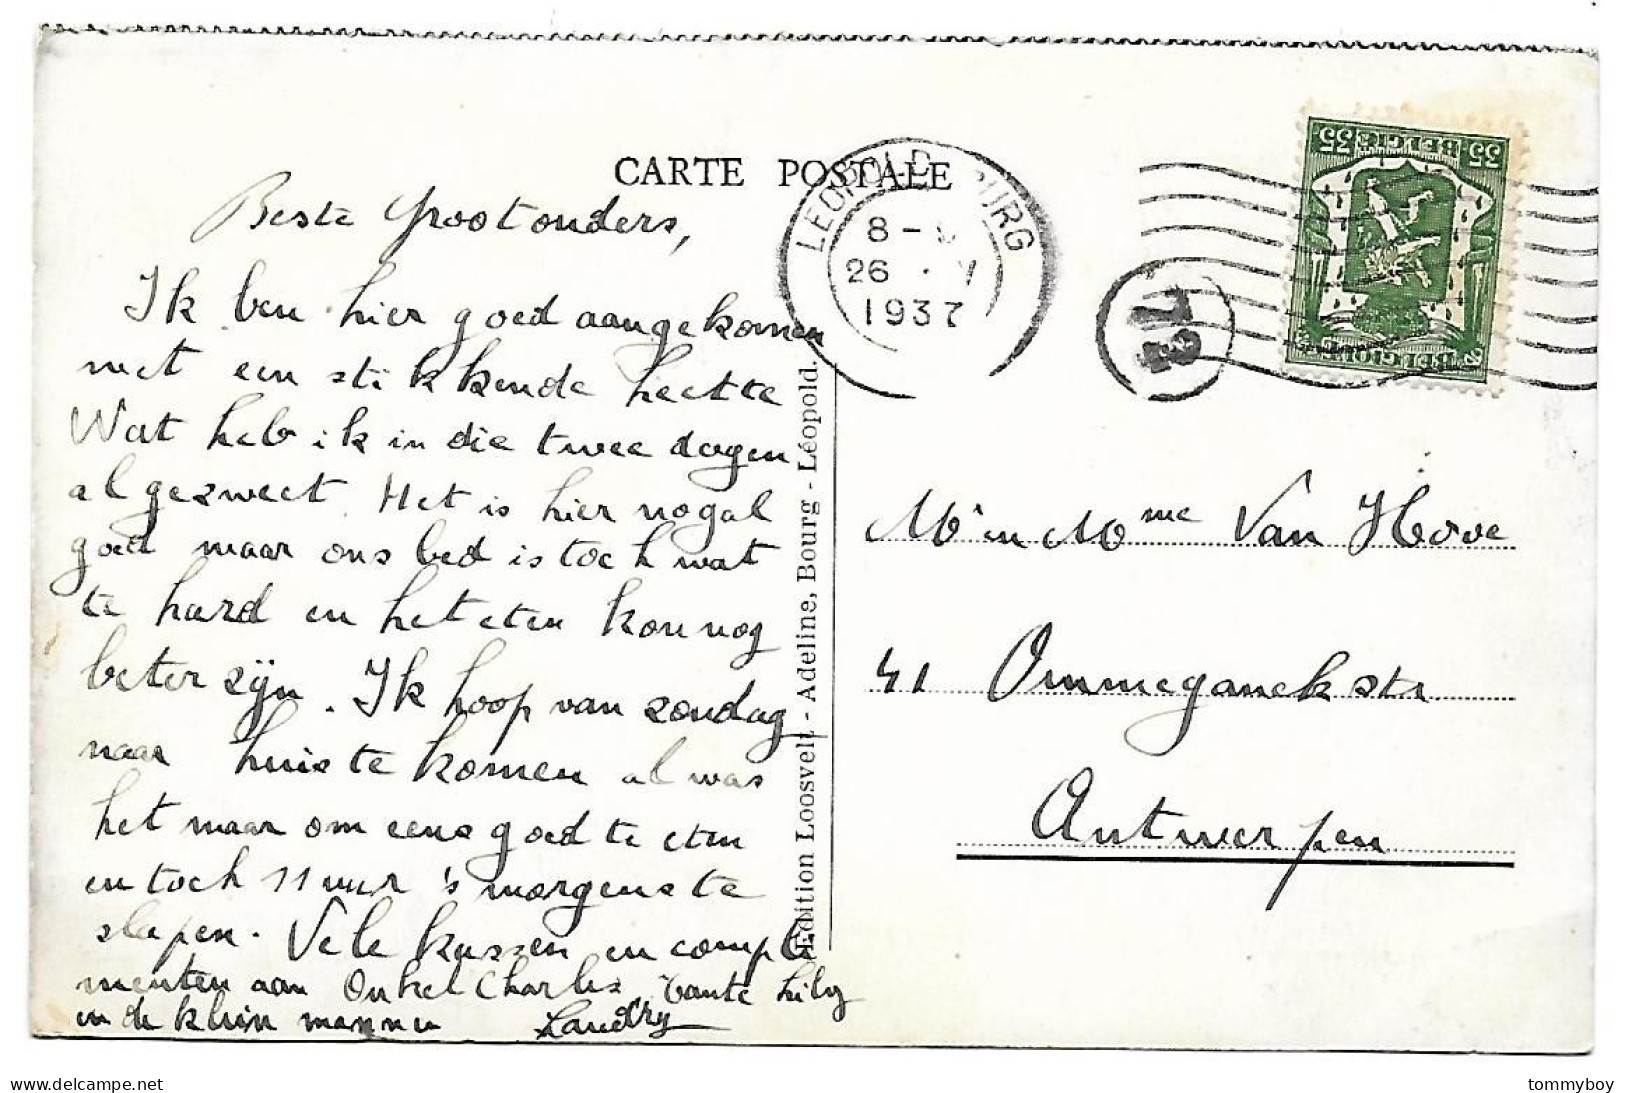 CARTE POSTALE
Beste Grootouders,
Ik ben hier goed aangekomen
met een stikkende heette
Wat heb ik in die twee dagen
al gezweet. Het is hier nogal
goed maar ons bed is toch wat
te hard en het eten kon nog
beter zijn. Ik hoop van zondag
naar huis te komen al was
het maar om eens goed te eten
en toch 11 uur 's morgens te
slapen. Vele kussen en compli
menten aan Onkel Charles, Tante Lily
en de klein mannen Landry
Edition Loosvelt - Adeline, Bourg - Léopold.
LEOPOLD BURG
8 -
26 V
1937
72
35 BELGIE 35
BELGIQUE
Mr en Mme Van Hove
41 Ommeganckstr
Antwerpen
delcampe.net
tommyboy